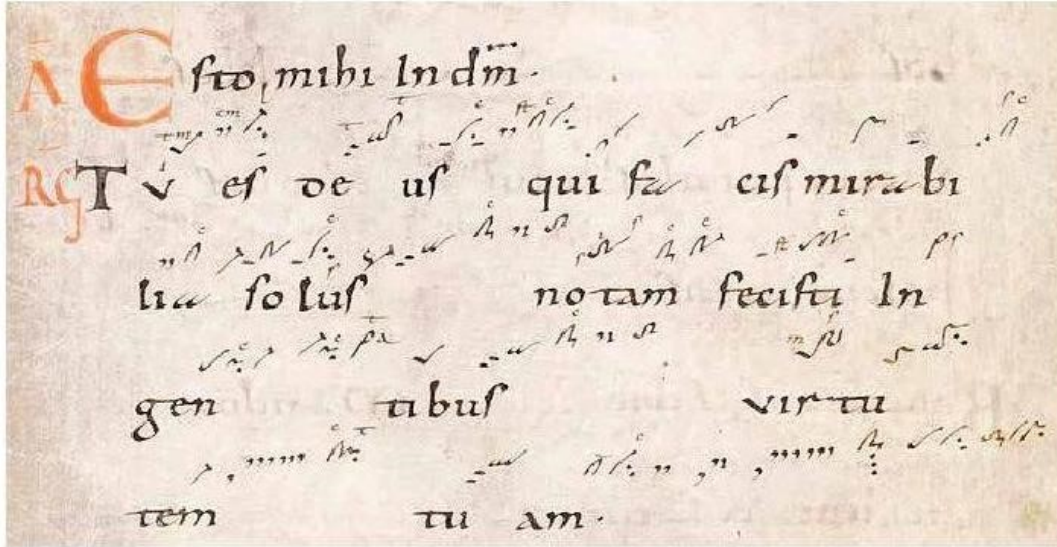 A Esto mihi In dm̄.
RG TU es de us qui fa cis mira bi
lia so lus no tam fecisti In
gen ti bus vir tu
tem tu am.